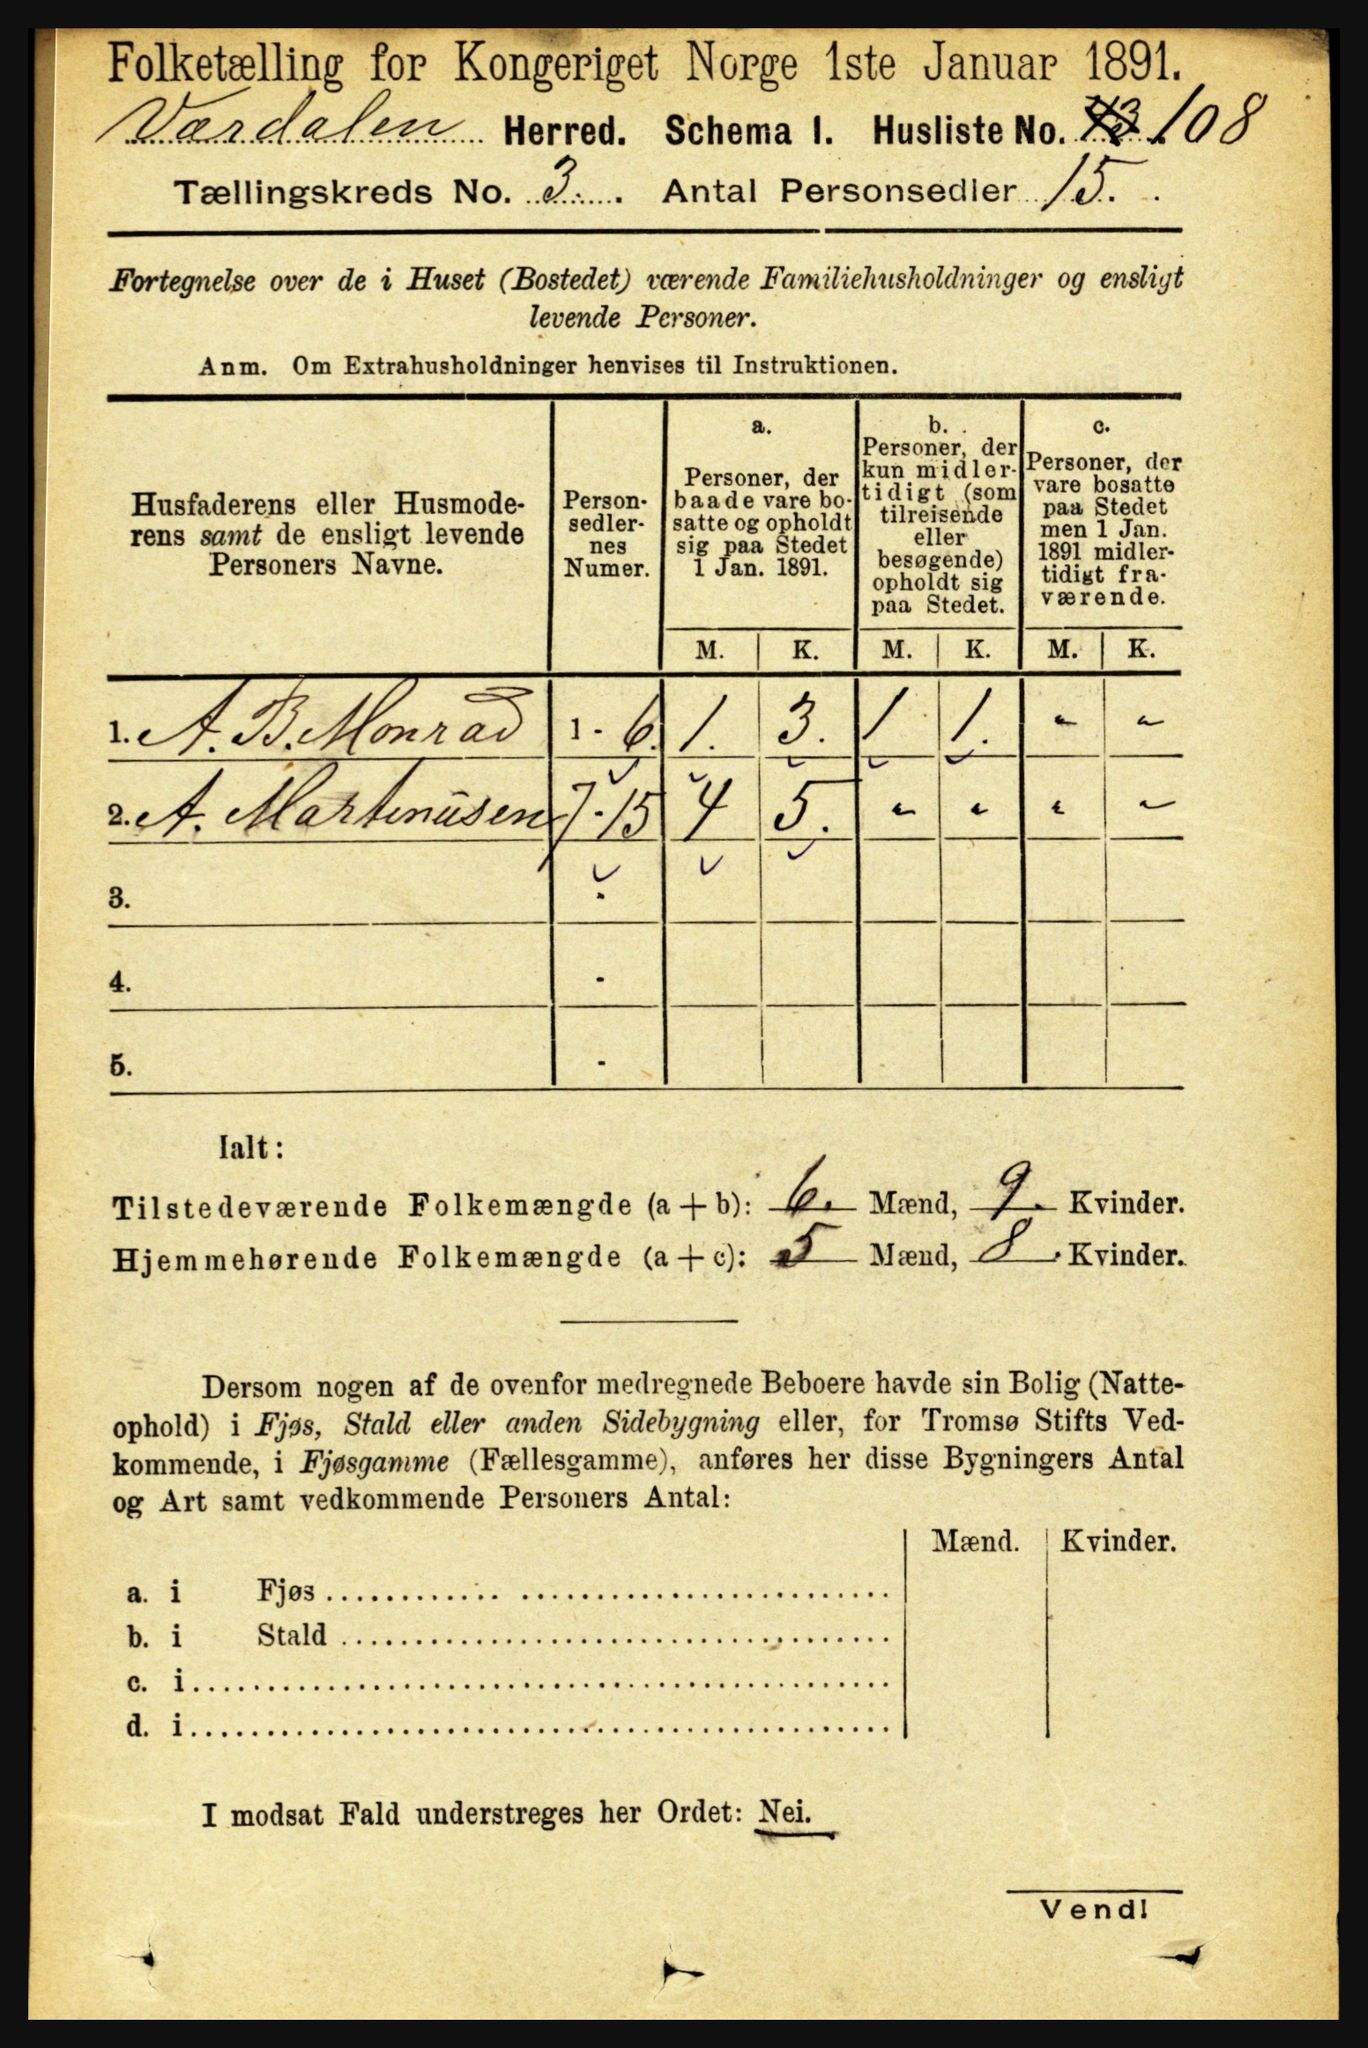 Folketælling for Kongeriget Norge 1ste Januar 1891.
Værdalen Herred. Schema 1. Husliste No. 108
Tællingskreds No. 3. Antal Personsedler 15.
Fortegnelse over de i Huset (Bostedet) værende Familiehusholdninger og ensligt
levende Personer.
Anm. Om Extrahusholdninger henvises til Instruktionen.
Husfaderens eller Husmode-
rens samt de ensligt levende
Personers Navne.
Person-
sedler-
nes
Numer.
a.
Personer, der
baade vare bo-
satte og opholdt
sig paa Stedet
1 Jan. 1891.
b.
Personer, der
kun midler-
tidigt (som
tilreisende
eller
besøgende)
opholdt sig
paa Stedet.
c.
Personer, der
vare bosatte
paa Stedet
men 1 Jan.
1891 midler-
tidigt fra-
værende.
M. K. M. K. M. K.
1. A. B. Monrad 1 - 6. 1. 3. 1 1. " "
2. A. Martinüsen 7 - 15 4 5. " " " "
3. -
4. -
5. -
Ialt:
Tilstedeværende Folkemængde (a + b): 6. Mænd, 9. Kvinder.
Hjemmehørende Folkemængde (a + c): 5 Mænd, 8. Kvinder.
Dersom nogen af de ovenfor medregnede Beboere havde sin Bolig (Natte-
ophold) i Fjøs, Stald eller anden Sidebygning eller, for Tromsø Stifts Ved-
kommende, i Fjøsgamme (Fællesgamme), anføres her disse Bygningers Antal
og Art samt vedkommende Personers Antal:
Mænd. Kvinder.
a. i Fjøs
b. i Stald
c. i
d. i
I modsat Fald understreges her Ordet: Nei.
Vend!